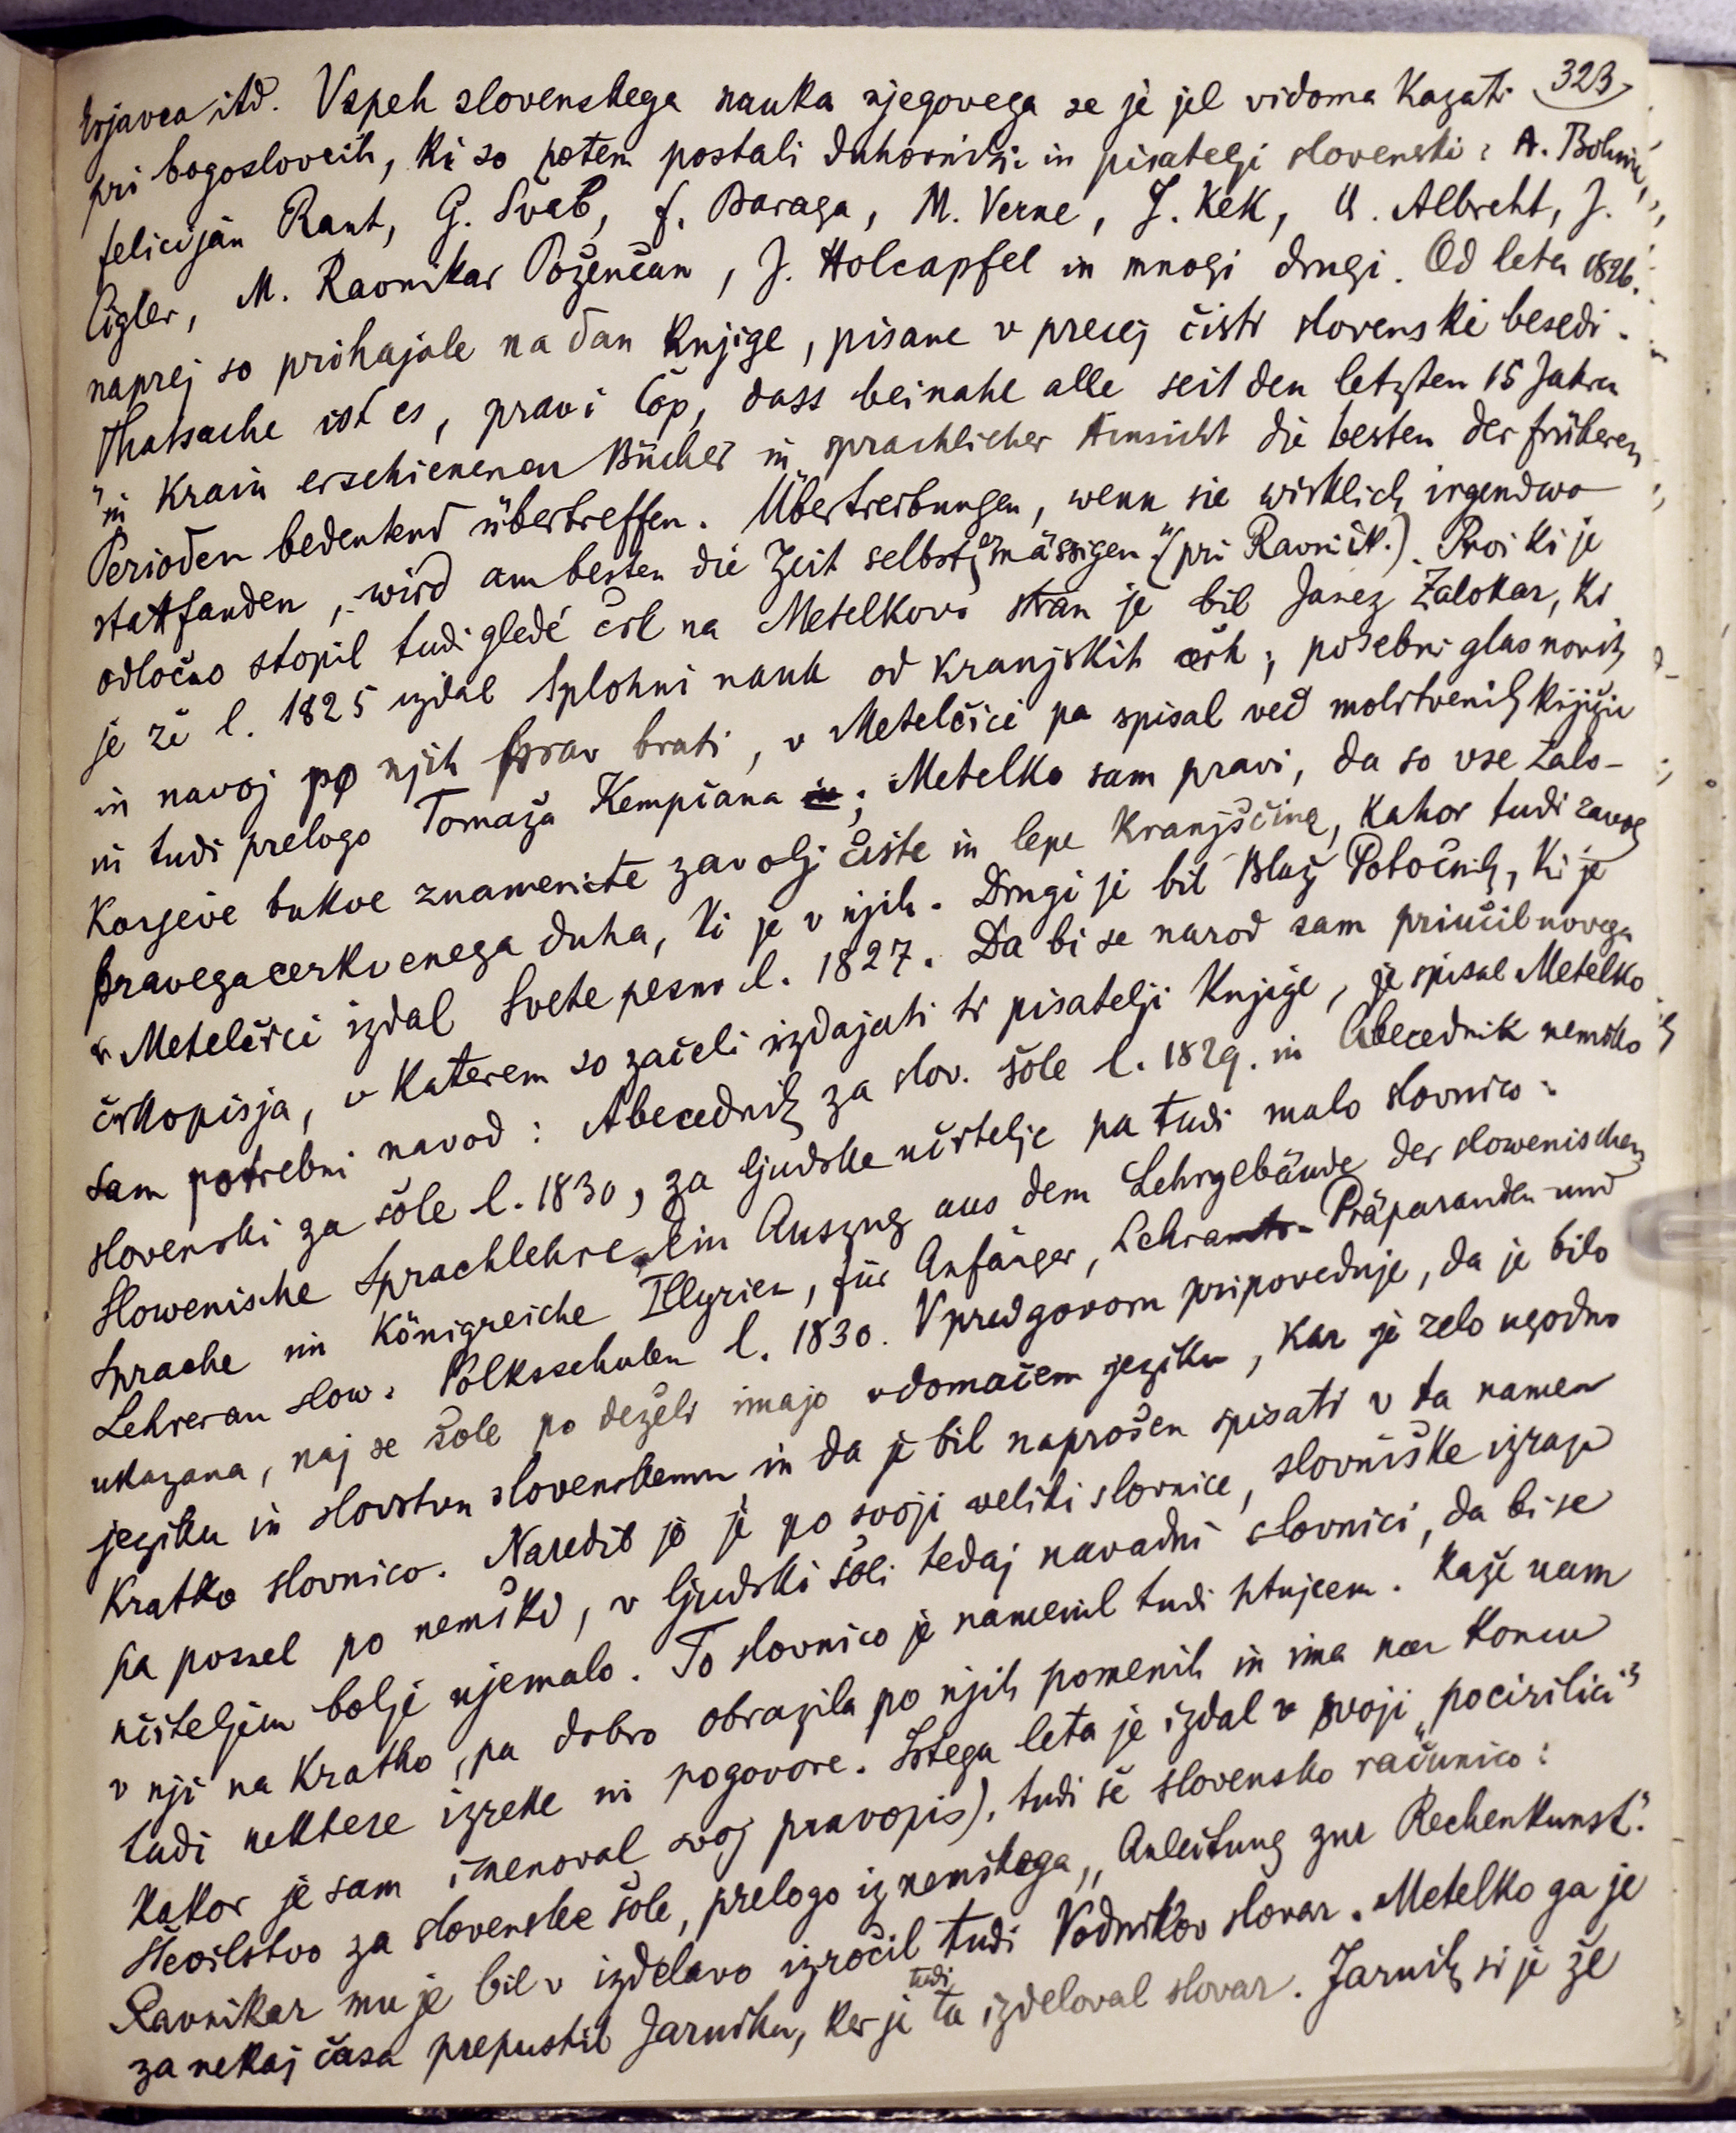 323
Erjavca itd. Vspeh slovenskega nauka njegovega se je jel vidoma kazati
pri bogoslovcih, ki so potem postali duhovniki in pisatelji slovenski: A. Bohinc,
Felicijan Rant, G. Švab, F. Baraga, M. Verne, J. Kek, A. Albreht, J.
Cigler, M. Ravnikar Poženčan, J. Holcapfel in mnogi drugi. Od leta 1826.
naprej so prihajale na dan knjige, pisane v precej čisti slovenski besedi.
Thatsache ist es, pravi Čop, dass beinahe alle seit den letzten 15 Jahren
"in Krain erschienenen Bücher in sprachlicher Hinsicht die besten der früheren
Perioden bedeutend übertreffen. Übertreibungen, wenn sie wirklich irgendwo
stattfanden, wird am besten die Zeit selbst ermässigen" (pri Ravnik.). Prvi ki je
odločno stopil tudi gledé črk na Metelkovo stran je bil Janez Zalokar, ki
je že l. 1825 izdal Splohni nauk od kranjskih čerk, posebni glas novih
in navoj po njih prav brati, v Metelčici pa spisal več molitvenih knjižic
in tudi prelogo Tomaža Kempčana; Metelko sam pravi, da so vse Zalo-
karjeve bukve znamenite zavolj čiste in lepe kranjščine, kakor tudi zavolj
pravega cerkvenega duha, ki je v njih. Drugi je bil Blaž Potočnik, ki je
v Metelčici izdal Svete pesmi l. 1827. Da bi se narod sam priučil novega
črkopisja, v katerem so začeli izdajati ti pisatelji knjige, je spisal Metelko
sam potrebni navod: Abecednik za slov. šole l. 1829. in Abecednik nemško
slovenski za šole l. 1830, za ljudske učitelje pa tudi malo slovnico:
Slowenische Sprachlehre, ein Auszug aus dem Lehrgebäude der slowenischen
Sprache im Königreiche Illyrien, für Anfänger, Lehramts-Präparanden und
Lehrer an slow. Volksschulen l. 1830. V predgovoru pripoveduje, da je bilo
ukazano, naj se šole po deželi imajo v domačem jeziku, kar je zelo ugodno
jeziku in slovstvu slovenskemu, in da je bil naprošen spisati v ta namen
kratko slovnico. Naredil jo je po svoji veliki slovnice, slovniške izraze
pa posnel po nemški, v ljudski šoli tedaj navadni slovnici, da bi se
učiteljem bolje ujemalo. To slovnico je namenil tudi ptujcem. Kaže nam
v nji na kratko, pa dobro obrazila po njih pomenih in ima na koncu
tudi nektere izreke in pogovore. Istega leta je izdal v svoji „pocirilici"
kakor je sam imenoval svoj pravopis), tudi še slovensko računico:
Številstvo za slovenske šole, prelogo iz nemškega „Anleitung zur Rechenkunst."
Ravnikar mu je bil v izdelavo izročil tudi Vodnikov slovar. Metelko ga je
za nekaj časa prepustil Jarniku, ker je tudi ta izdeloval slovar. Jarnik si je že